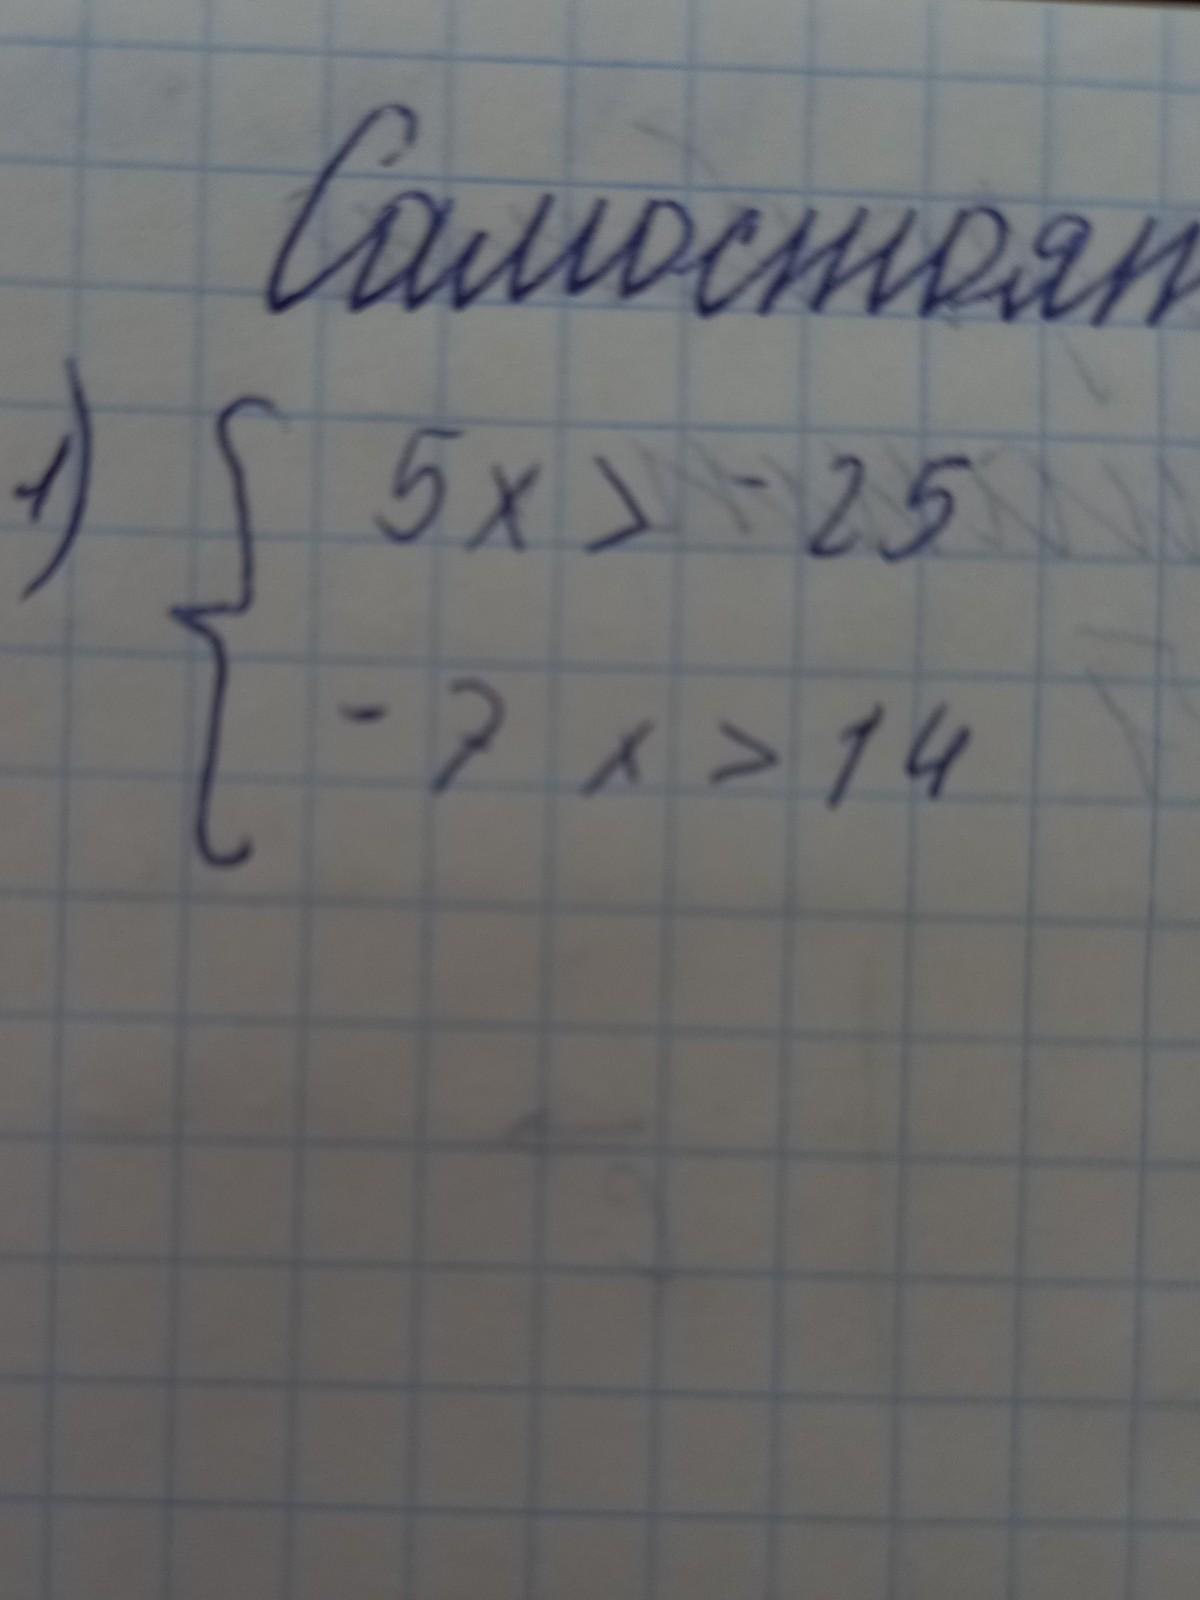 Самостоян
1) { 5x > -25
-7x > 14